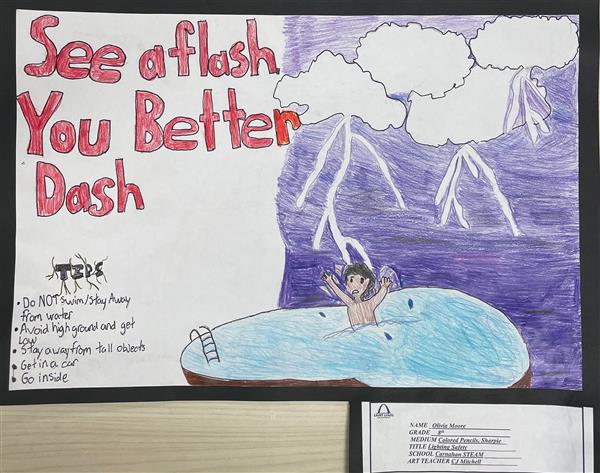 See a flash,
You Better
Dash
TIPS
• Do NOT swim/stay Away
from water
• Avoid high ground and get
Low
• Stay away from tall objects
• Get in a car
• Go inside
NAME Olivia Moore
GRADE 8th
MEDIUM Colored Pencils, Sharpie
TITLE Lighting Safety
SCHOOL Carnahan STEAM
ART TEACHER CJ Mitchell